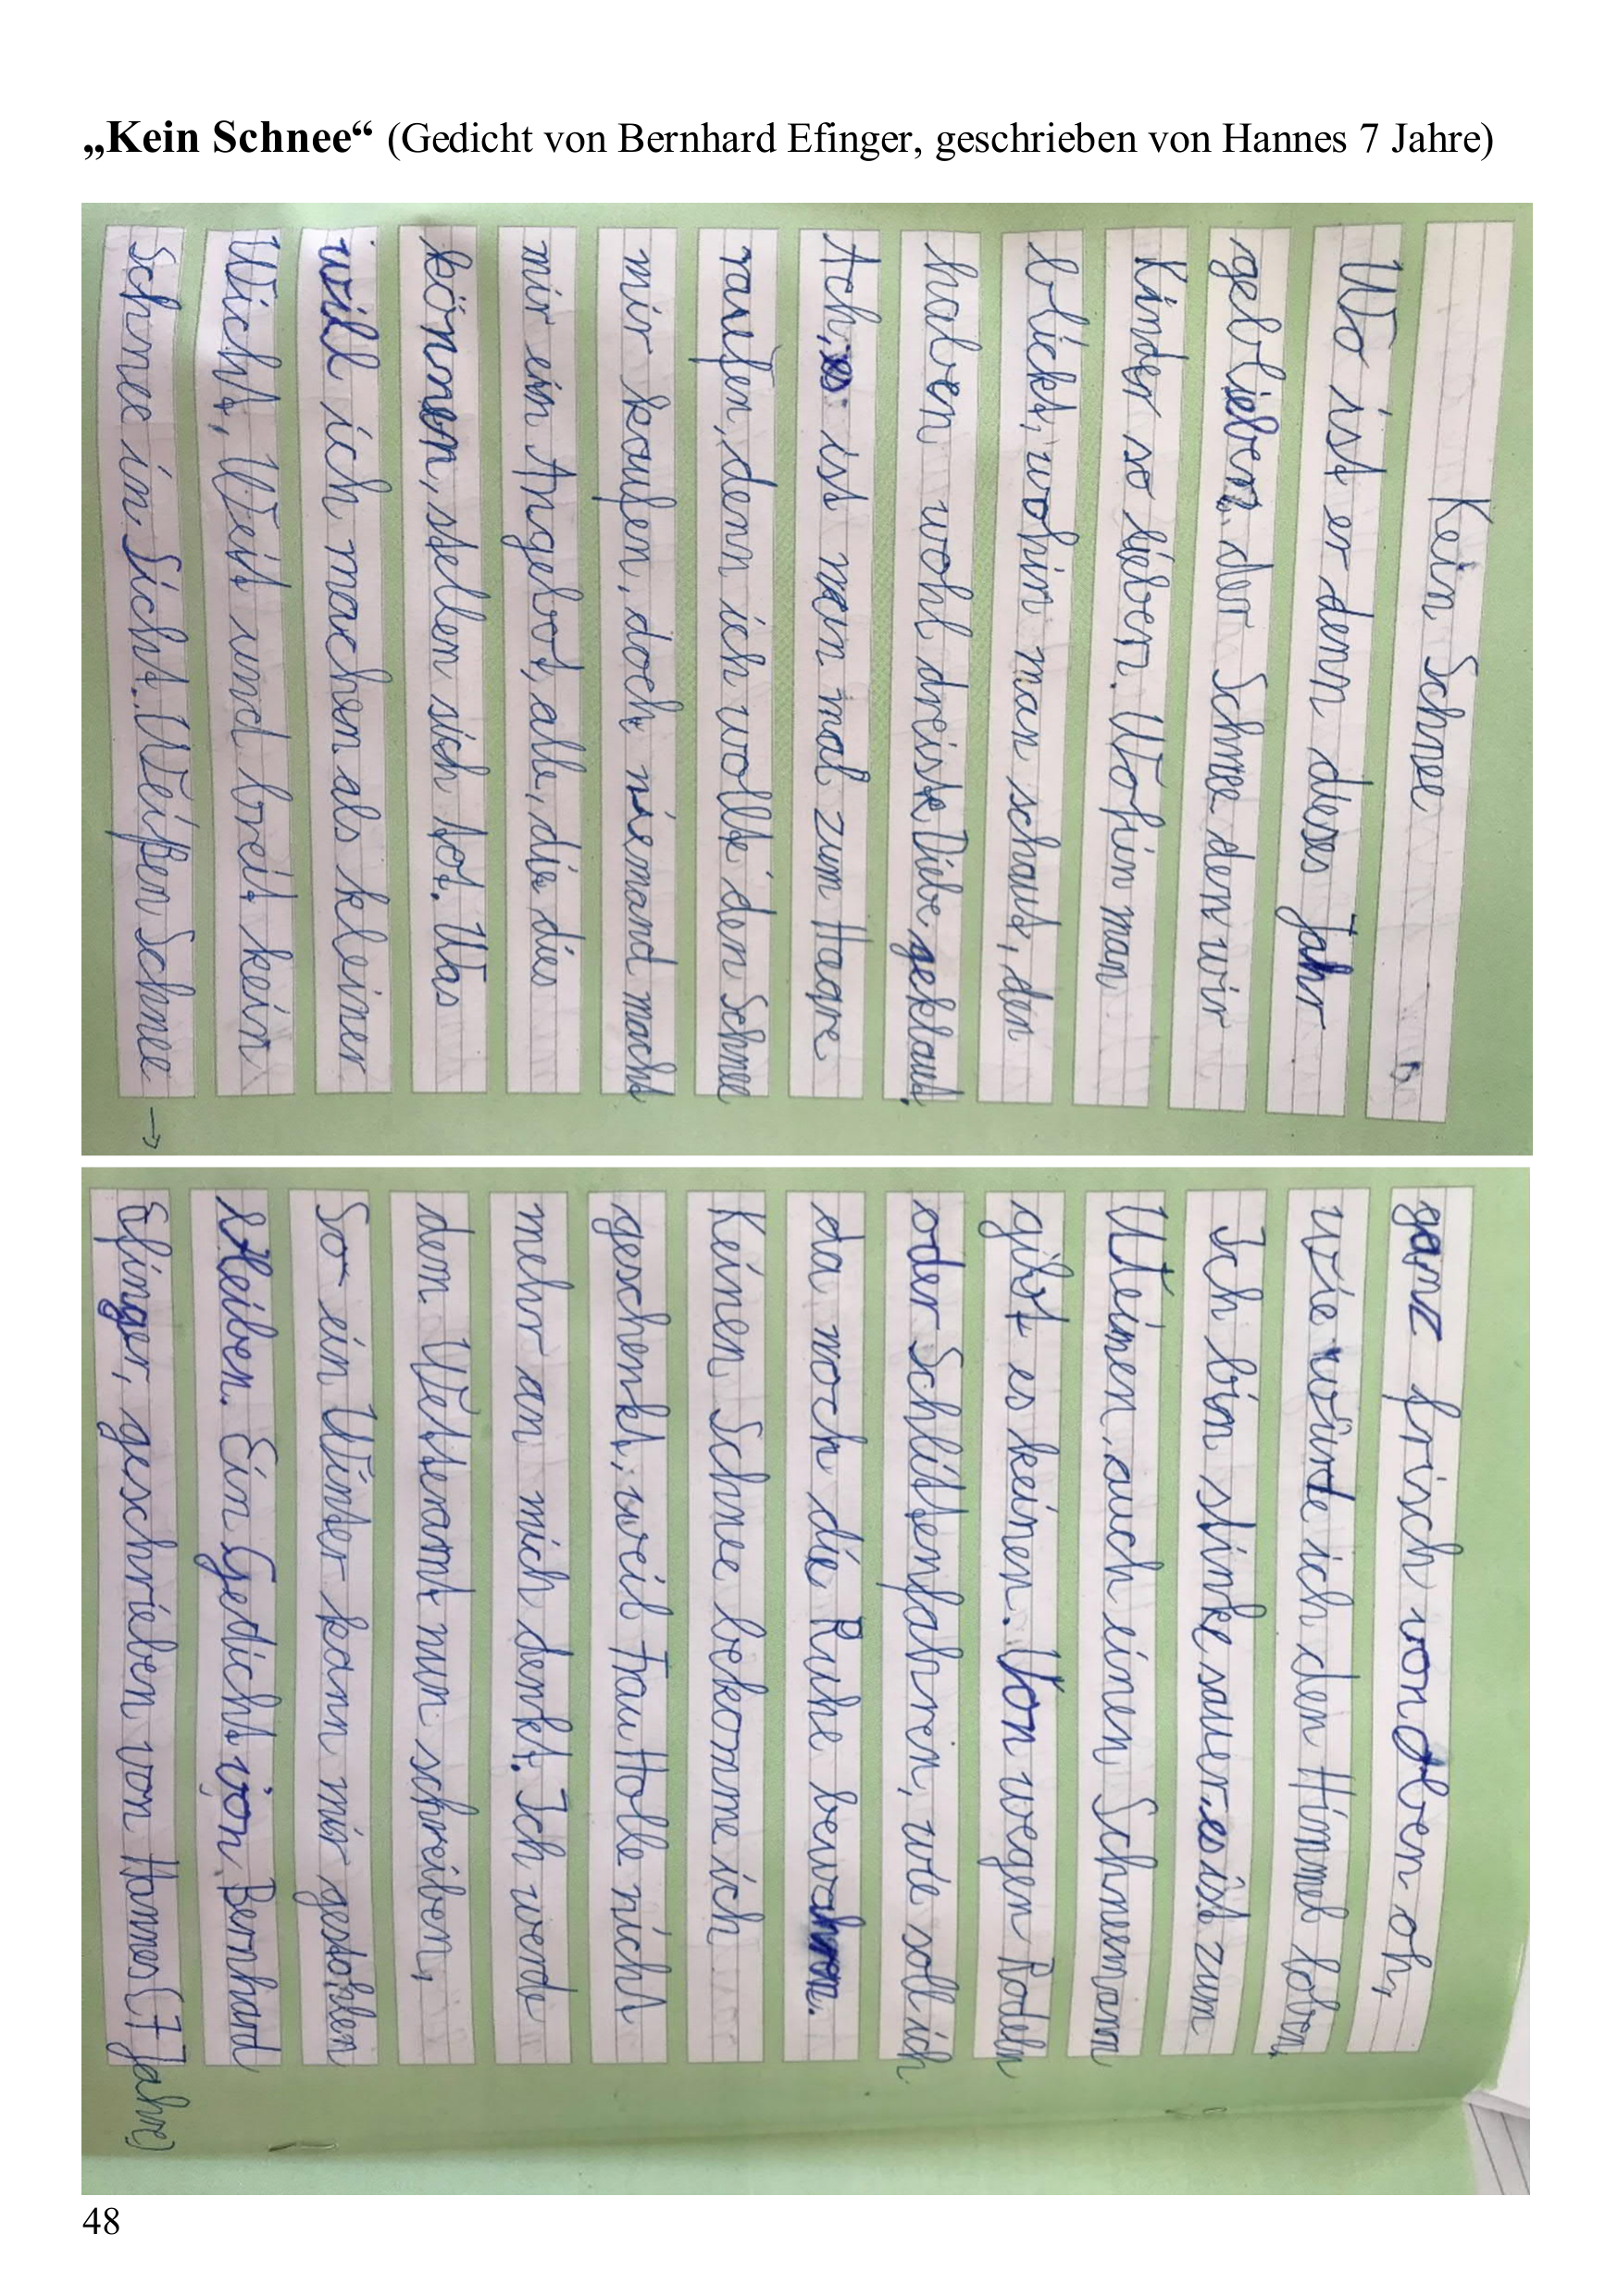 „Kein Schnee“ (Gedicht von Bernhard Efinger, geschrieben von Hannes 7 Jahre)
Kein Schnee
Wo ist er denn dieses Jahr
geblieben, der Schnee den wir
Kinder so lieben. Wohin man
blickt, wohin man schaut, den
haben wohl dreiste Diebe geklaut.
Ach, es ist man mal zum Haare
raufen, denn ich wollte den Schnee
mir kaufen, doch niemand macht
mir ein Angebot, alle, die dies
können, stellen sich tot. Was
will ich machen als kleiner
Wicht, Weit und breit kein
Schnee in Sicht. Weißen Schnee →
ganz frisch von oben oh,
wie würde ich den Himmel loben,
Ich bin stinke sauer, es ist zum
Weinen, auch einen Schneemann
gibt es keinen. Von wegen Rodeln
oder Schlittenfahren, wie soll ich
da noch die Ruhe bewahren.
Keinen Schnee bekomme ich
geschenkt, weil Frau Holle nicht
mehr an mich denkt. Ich werde
dem Wetteramt nun schreiben,
So ein Winter kann mir gestohlen
bleiben. Ein Gedicht von Bernhard
Efinger, geschrieben von Hannes (7 Jahre)
48